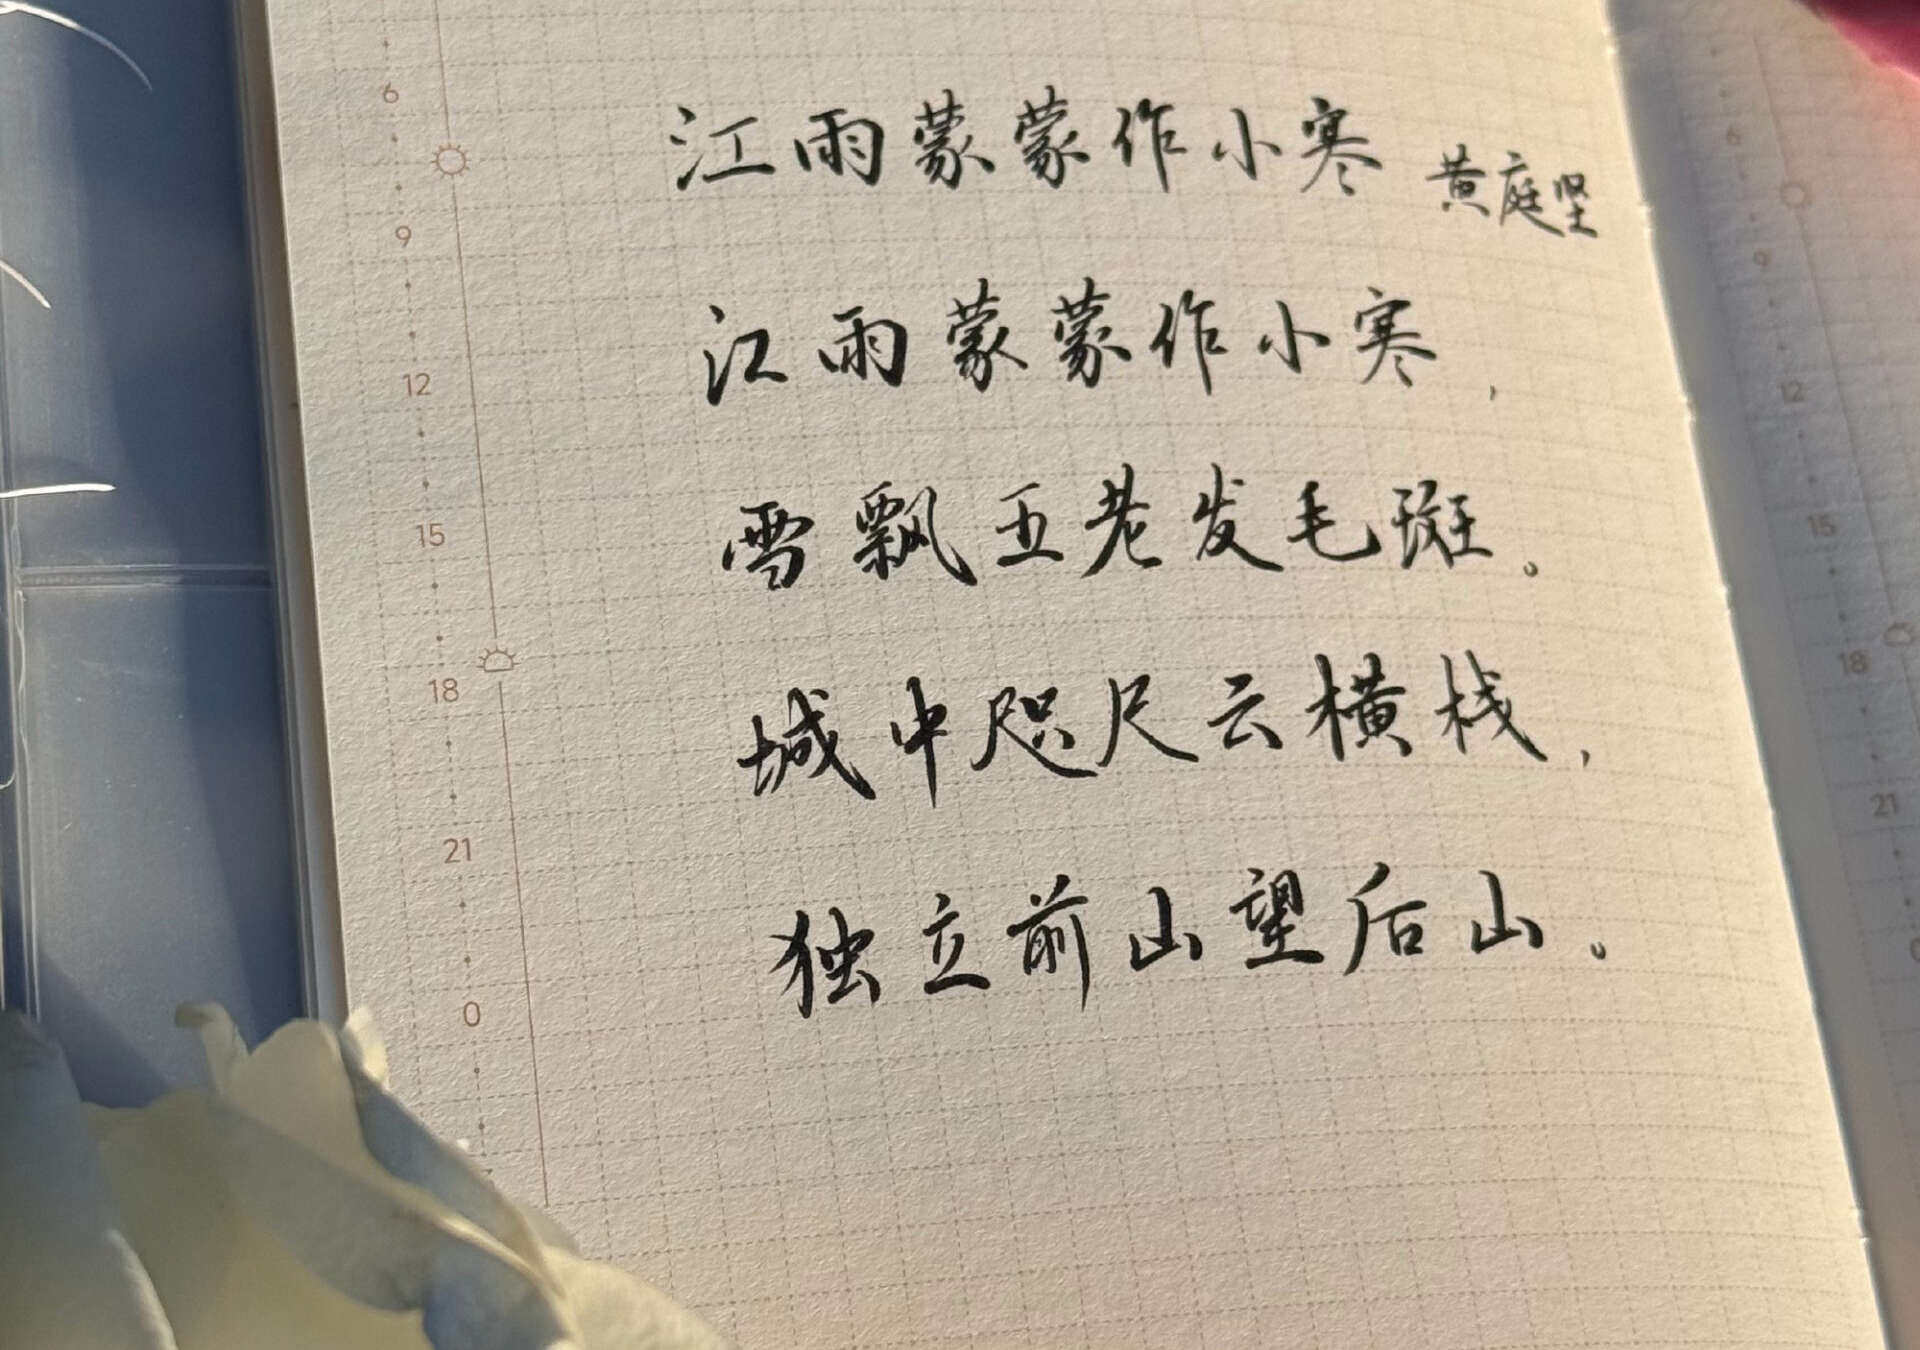 江雨蒙蒙作小寒 黄庭坚
江雨蒙蒙作小寒，
雪飘五老发毛斑。
城中咫尺云横栈，
独立前山望后山。
6
9
12
15
18
21
0
6
9
12
15
18
21